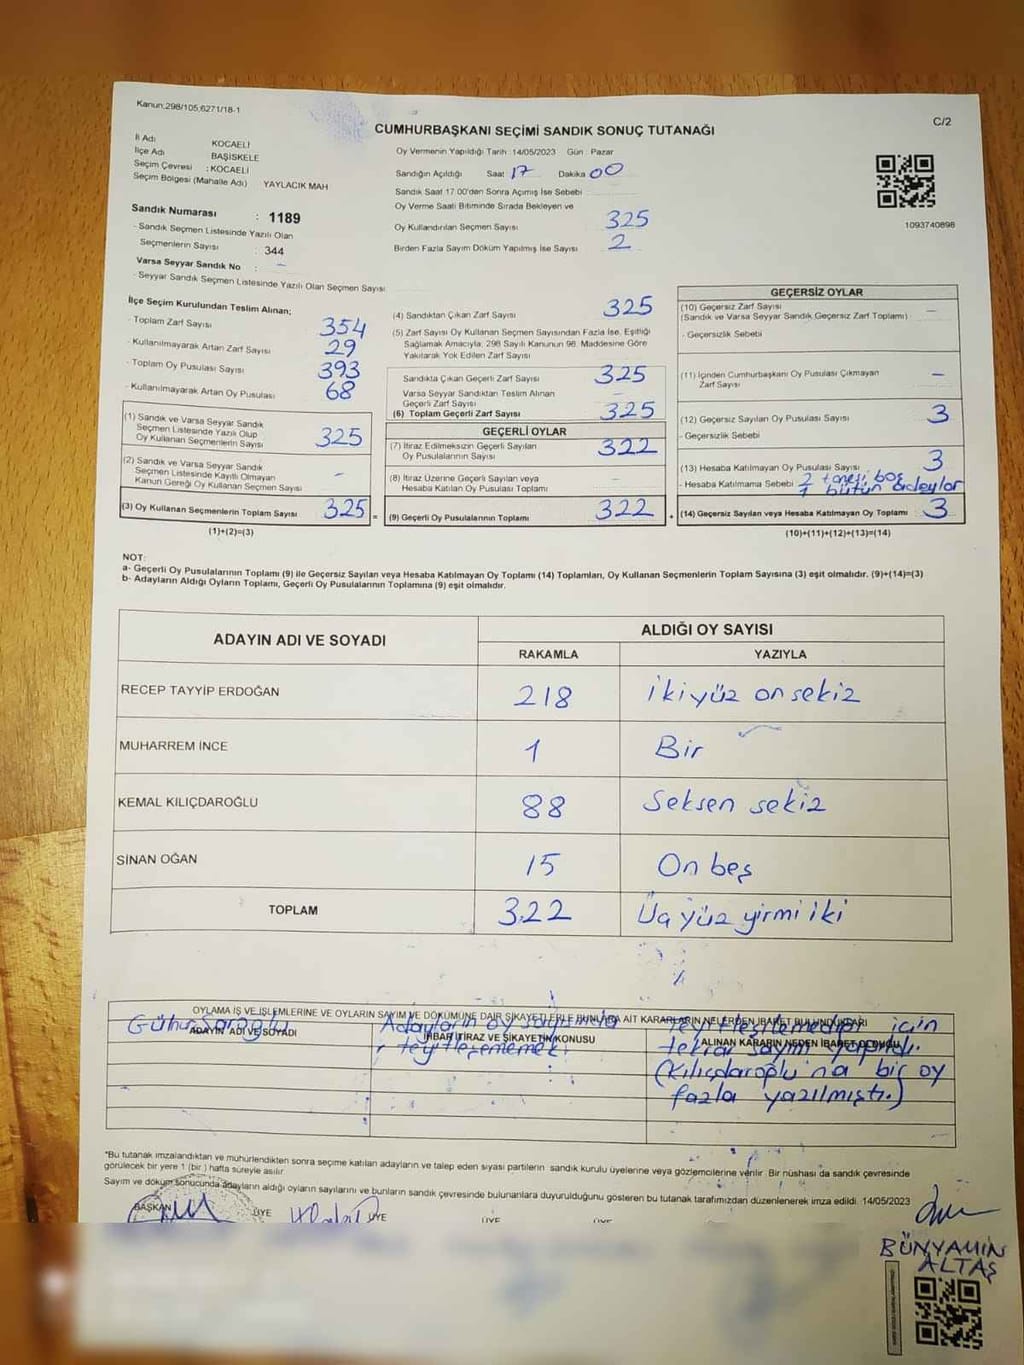 Kanun:298/105;6271/18-1
C/2
CUMHURBAŞKANI SEÇİMİ SANDIK SONUÇ TUTANAĞI
İl Adı KOCAELİ
İlçe Adı BAŞİSKELE
Seçim Çevresi : KOCAELİ
Seçim Bölgesi (Mahalle Adı) YAYLACIK MAH
Sandık Numarası : 1189
- Sandık Seçmen Listesinde Yazılı Olan
Seçmenlerin Sayısı : 344
Varsa Seyyar Sandık No : -
- Seyyar Sandık Seçmen Listesinde Yazılı Olan Seçmen Sayısı
Oy Vermenin Yapıldığı Tarih :14/05/2023 Gün : Pazar
Sandığın Açıldığı Saat 17 Dakika 00
Sandık Saat 17.00'den Sonra Açımış İse Sebebi
Oy Verme Saati Bitiminde Sırada Bekleyen ve
Oy Kullandırılan Seçmen Sayısı 325
Birden Fazla Sayım Döküm Yapılmış İse Sayısı 2
1093740898
İlçe Seçim Kurulundan Teslim Alınan;
- Toplam Zarf Sayısı 354
- Kullanılmayarak Artan Zarf Sayısı 29
- Toplam Oy Pusulası Sayısı 393
- Kullanılmayarak Artan Oy Pusulası 68
(1) Sandık ve Varsa Seyyar Sandık
Seçmen Listesinde Yazılı Olup
Oy Kullanan Seçmenlerin Sayısı 325
(2) Sandık ve Varsa Seyyar Sandık
Seçmen Listesinde Kayıtlı Olmayan
Kanun Gereği Oy Kullanan Seçmen Sayısı -
(3) Oy Kullanan Seçmenlerin Toplam Sayısı 325 =
(1)+(2)=(3)
(4) Sandıktan Çıkan Zarf Sayısı 325
(5) Zarf Sayısı Oy Kullanan Seçmen Sayısından Fazla İse, Eşitliği
Sağlamak Amacıyla, 298 Sayılı Kanunun 98. Maddesine Göre
Yakılarak Yok Edilen Zarf Sayısı
Sandıkta Çıkan Geçerli Zarf Sayısı 325
Varsa Seyyar Sandıktan Teslim Alınan
Geçerli Zarf Sayısı -
(6) Toplam Geçerli Zarf Sayısı 325
GEÇERLİ OYLAR
(7) İtiraz Edilmeksizin Geçerli Sayılan
Oy Pusulalarının Sayısı 322
(8) İtiraz Üzerine Geçerli Sayılan veya
Hesaba Katılan Oy Pusulası Toplamı -
(9) Geçerli Oy Pusulalarının Toplamı 322 +
GEÇERSİZ OYLAR
(10) Geçersiz Zarf Sayısı -
(Sandık ve Varsa Seyyar Sandık Geçersiz Zarf Toplamı)
- Geçersizlik Sebebi
(11) İçinden Cumhurbaşkanı Oy Pusulası Çıkmayan
Zarf Sayısı -
(12) Geçersiz Sayılan Oy Pusulası Sayısı 3
- Geçersizlik Sebebi
(13) Hesaba Katılmayan Oy Pusulası Sayısı 3
- Hesaba Katılmama Sebebi 2 tanesi boş
1 bütün adaylar
(14) Geçersiz Sayılan veya Hesaba Katılmayan Oy Toplamı 3
(10)+(11)+(12)+(13)=(14)
NOT:
a- Geçerli Oy Pusulalarının Toplamı (9) ile Geçersiz Sayılan veya Hesaba Katılmayan Oy Toplamı (14) Toplamları, Oy Kullanan Seçmenlerin Toplam Sayısına (3) eşit olmalıdır. (9)+(14)=(3)
b- Adayların Aldığı Oyların Toplamı, Geçerli Oy Pusulalarının Toplamına (9) eşit olmalıdır.
ADAYIN ADI VE SOYADI
ALDIĞI OY SAYISI
RAKAMLA YAZIYLA
RECEP TAYYİP ERDOĞAN 218 İkiyüz onsekiz
MUHARREM İNCE 1 Bir
KEMAL KILIÇDAROĞLU 88 Seksen sekiz
SİNAN OĞAN 15 On beş
TOPLAM 322 Üçyüz yirmi iki
OYLAMA İŞ VE İŞLEMLERİNE VE OYLARIN SAYIM VE DÖKÜMÜNE DAİR ŞİKAYETLERLE BUNLARA AİT KARARLARIN NELERDEN İBARET BULUNDUKLARI
ADAYIN ADI VE SOYADI
İHBAR İTİRAZ VE ŞİKAYETİN KONUSU
ALINAN KARARIN NEDEN İBARET OLDUĞU
Adayların oy sayısında
için
tekrar sayım yapıldı.
(Kılıçdaroğlu'na bir oy
fazla yazılmıştı.)
*Bu tutanak imzalandıktan ve mühürlendikten sonra seçime katılan adayların ve talep eden siyasi partilerin sandık kurulu üyelerine veya gözlemcilerine verilir. Bir nüshası da sandık çevresinde
görülecek bir yere 1 (bir) hafta süreyle asılır
Sayım ve döküm sonucunda adayların aldığı oyların sayılarını ve bunların sandık çevresinde bulunanlara duyurulduğunu gösteren bu tutanak tarafımızdan düzenlenerek imza edildi. 14/05/2023
BAŞKAN ÜYE ÜYE ÜYE
BÜNYAMİN
ALTAŞ